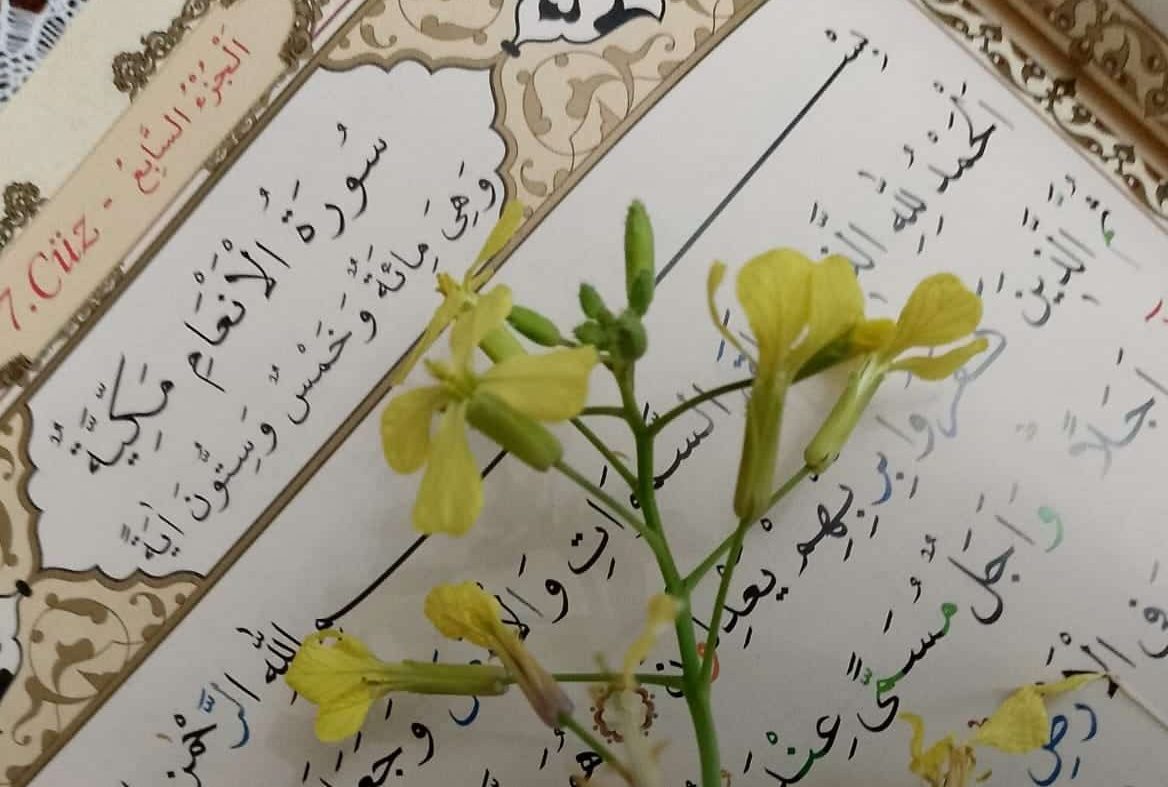 7.Cüz - اَلْجُزْءُ السَّابِعُ
سُورَةُ الْاَنْعَامِ مَكِّيَّةٌ
وَهِيَ مِائَةٌ وَخَمْسٌ وَسِتُّونَ اٰيَةً
بِسْمِ اللّٰهِ الرَّحْمٰنِ
اَلْحَمْدُ لِلّٰهِ السَّمٰوَاتِ وَالْاَرْضَ
الَّذِينَ كَفَرُوا بِرَبِّهِمْ يَعْدِلُونَ
اَجَلاً وَاَجَلٌ مُسَمًّى عِنْدَ
فِي الْاَرْضِ